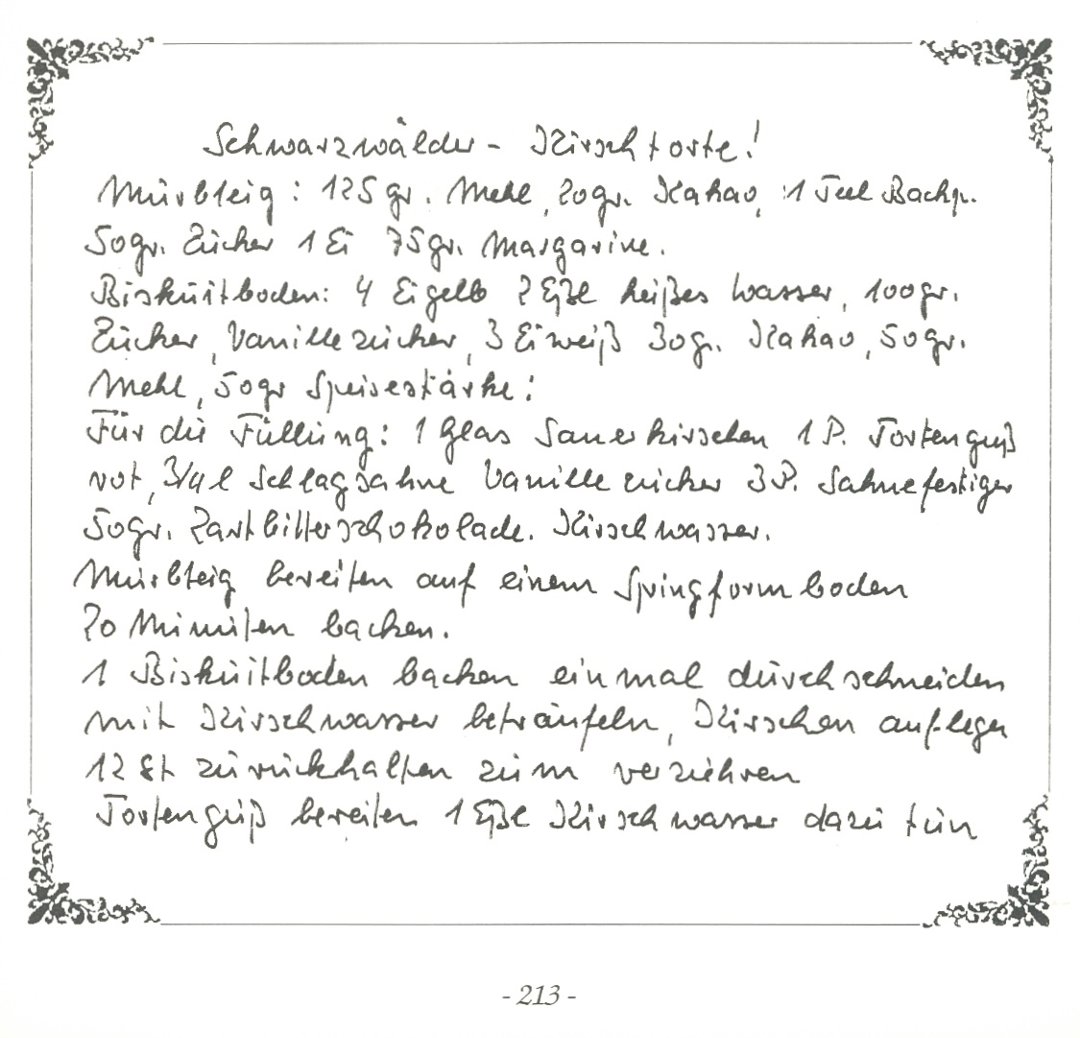 Schwarzwälder - Kirschtorte!
Mürbteig: 125 gr. Mehl, 20gr. Kakao, 1 Teel Backp.
50gr. Zucker 1 Ei 75gr. Margarine.
Biskuitboden: 4 Eigelb 2 Eßl heißes Wasser, 100gr.
Zucker, Vanillezucker, 3 Eiweiß 30g. Kakao, 50gr.
Mehl, 50gr Speisestärke:
Für die Füllung: 1 Glas Sauerkirschen 1 P. Tortenguß
rot, 3/4 l Schlagsahne Vanillezucker 3P. Sahnefestiger
50gr. Zartbitterschokolade. Kirschwasser.
Mürbteig bereiten auf einem Springformboden
20 Minuten backen.
1 Biskuitboden backen einmal durchschneiden
mit Kirschwasser beträufeln, Kirschen auflegen
12 St zurückhalten zum verziehren
Tortenguß bereiten 1 Eßl Kirschwasser dazu tun
- 213 -